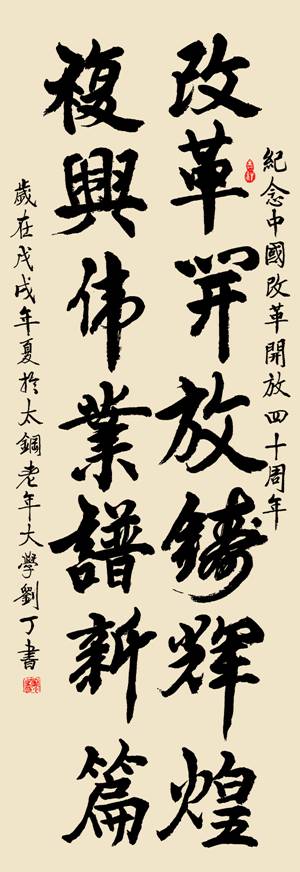 紀念中國改革開放四十周年
改革開放鑄輝煌
復興伟業譜新篇
歲在戊戌年夏於太鋼老年大學劉丁書